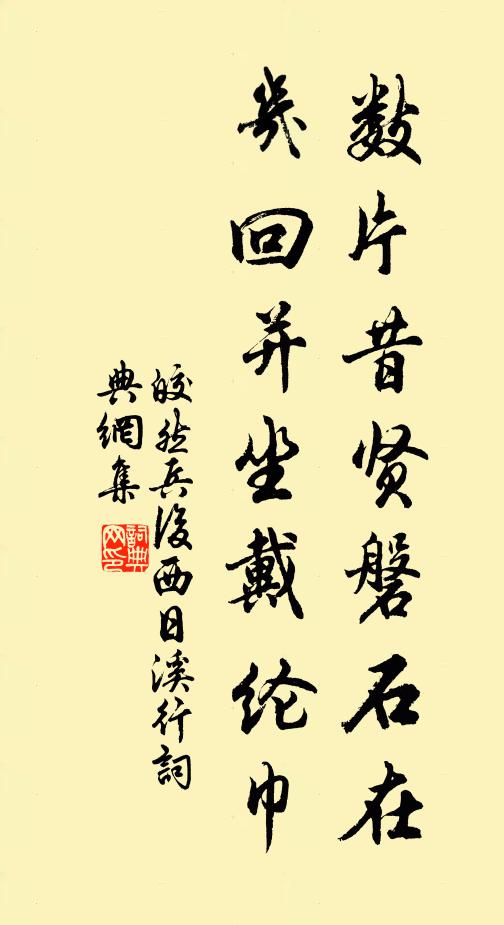 数片昔贤磐石在
几回并坐戴纶巾
皎然兵後西日溪行詞
典網集
詞典网印